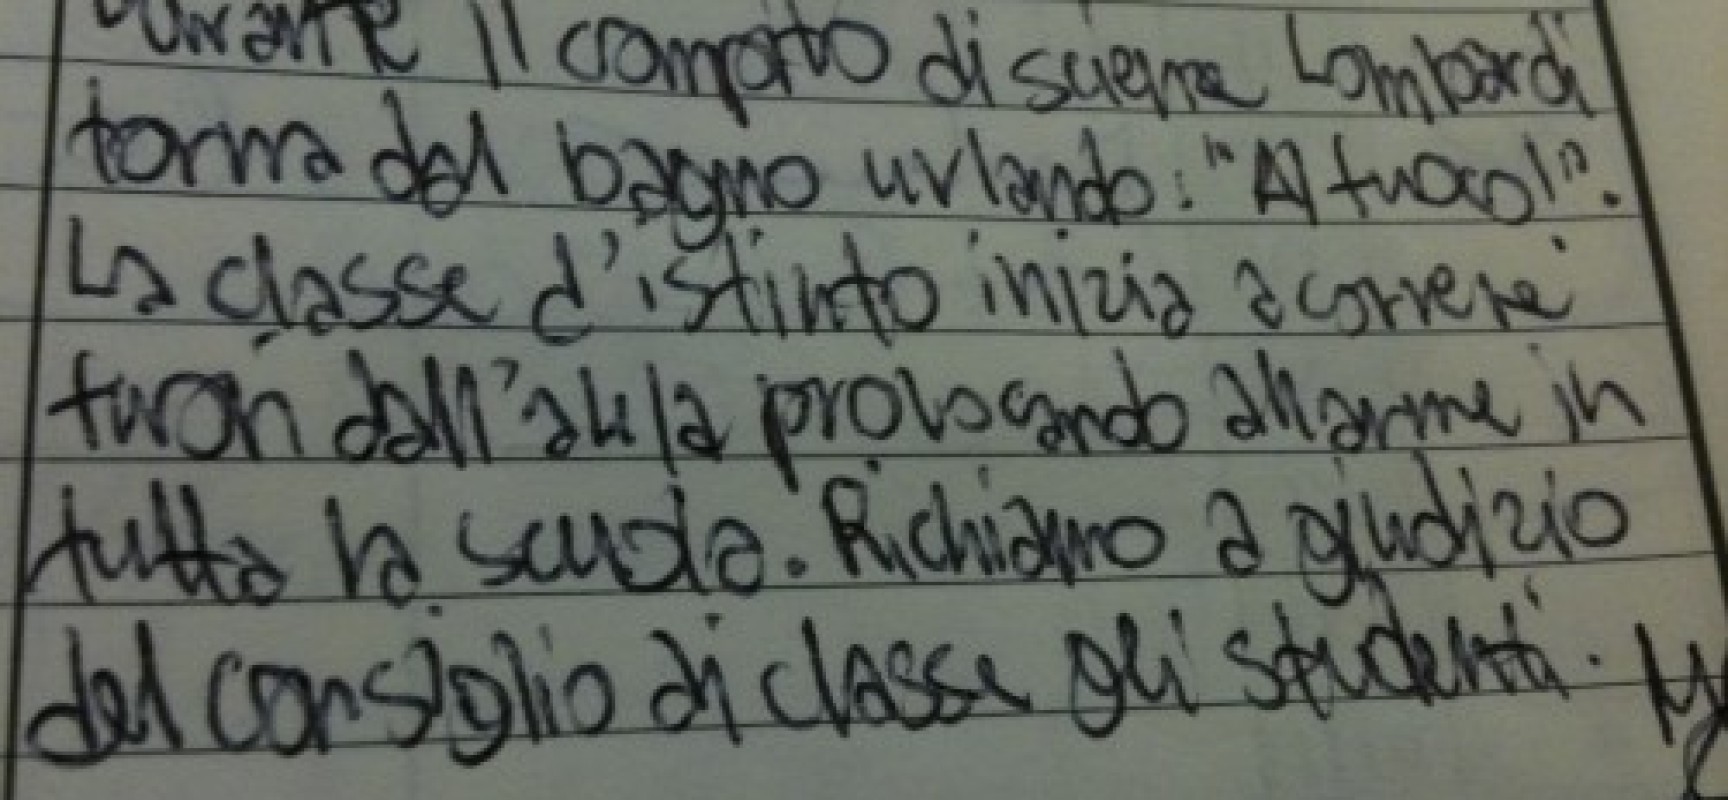 Durante il compito di scienze Lombardi
torna dal bagno urlando: "Al fuoco!".
La classe d'istinto inizia a correre
fuori dall'aula provocando allarme in
tutta la scuola. Richiamo a giudizio
del consiglio di classe gli studenti.